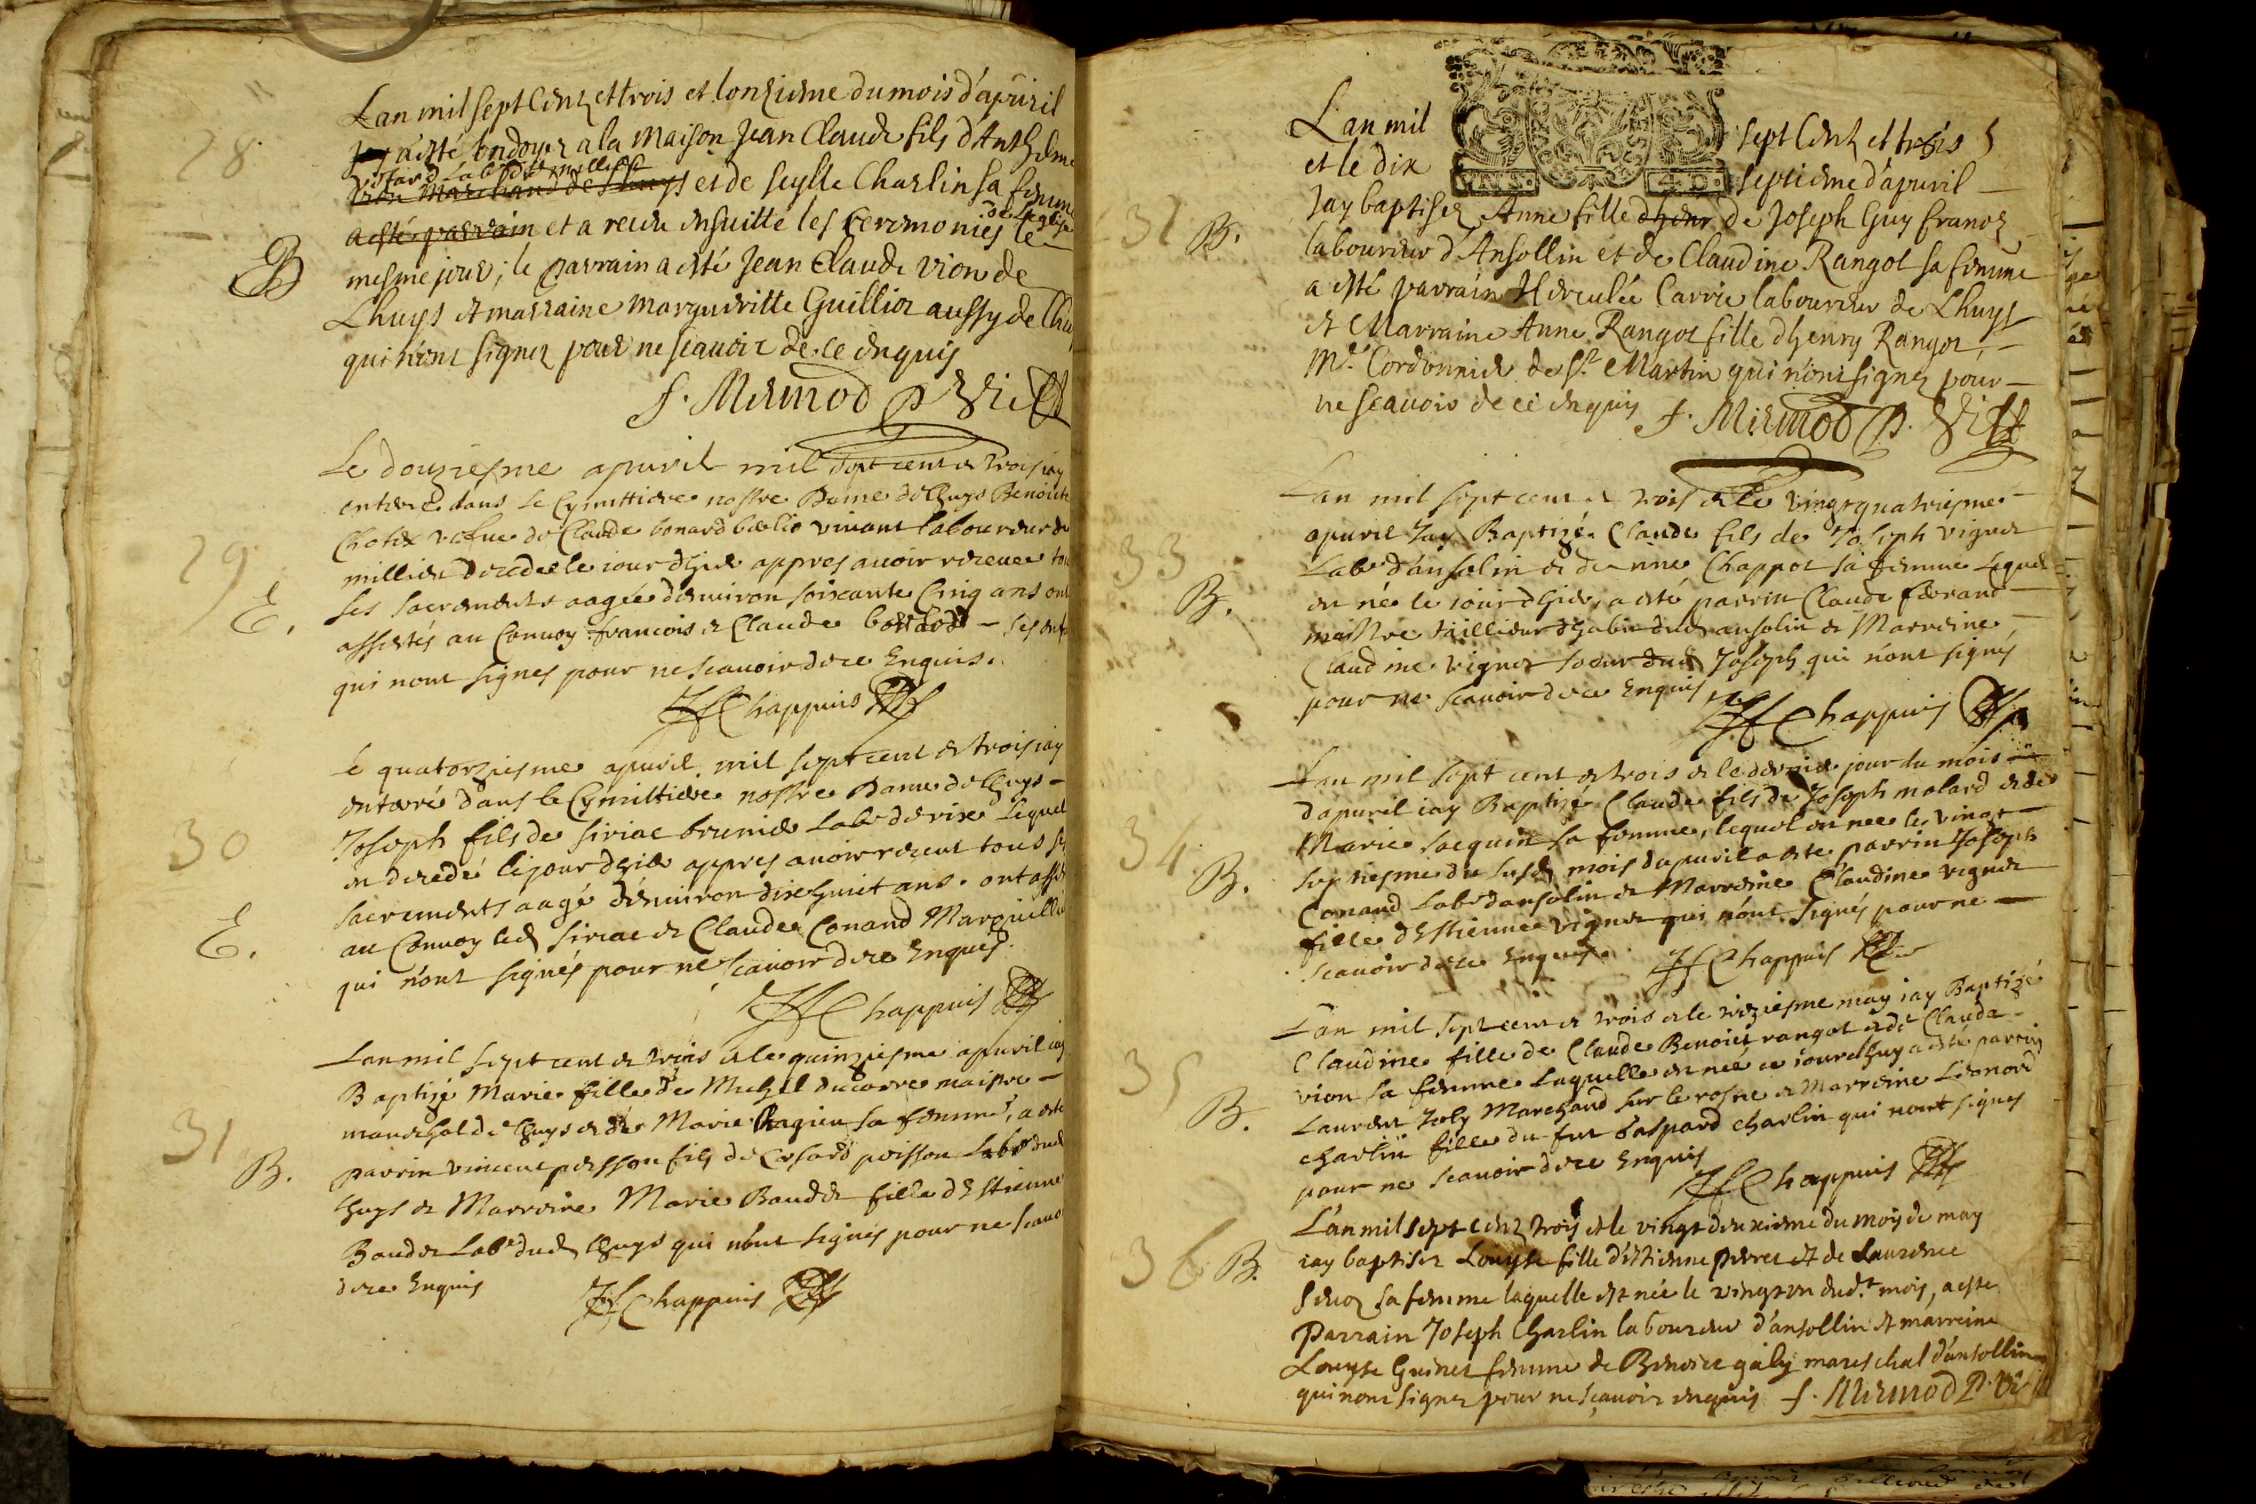 28
Lan mil sept Cent et trois et lonzieme du mois d'apuril
a esté ondoyez a la Maison Jean Claude fils d'Anthelme
Vion Marchand de Lhuys et de Seylle Charlin sa femme
a esté parrain et a receu ensuitte les ceremonies de leglise le
B
mesme jour; le parrain a esté Jean Claude Vion de
Lhuys et marraine Margueritte Guillior aussy de Lhuy
qui n'ont signez pour ne scauoir de ce enquis
f. Mermod p Vic
Le douziesme apuril mil sept cent et trois iay
enterré dans le Cymittiere nostre Dame de lhuys Benoiste
vefue de Claude bonard viuant laboureur de
29
millieu decedee le iour dhier appres auoir receue tou
E.
ses sacrements aagée denuiron soixante Cinq ans ont
assistés au Conuoy francois et Claude
qui nont signes pour ne scauoir de ce Enquis.
Chappuis
e quatorziesme apuril mil sept cent et trois iay
enterré dans le Cymittiere nostre Dame de lhuys
30
Joseph fils de siriac brunier Labr de rix lequel
est decedé le jour dhier appres auoir receut tous se
sacrements aagé denuiron dixhuict ans. ont assi
E.
au Conuoy led siriac et Claude Conand Marguillie
qui n'ont signés pour ne scauoir de ce Enquis.
Chappuis
Lan mil sept cent et trois et le quinziesme apuril iay
Baptizé Marie fille de Michel ducarre maistre
31
mareschal de lhuys et de Marie Ragieu sa femme, a esté
B.
parrin vincent poisson fils de Cesard poisson Labr dud
lhuys et Marreine Marie Baudet fille dEstienne
Baudet Labr dud lhuys qui n'ont signés pour ne scauo
de ce Enquis
Chappuis
Lan mil sept Cent et trois
et le dix septieme d'apuril
32 B.
Jay baptisez Anne fille de Joseph Guy franc
laboureur d'Ansollin et de Claudine Rangot sa femme
a esté parrain Herculée Carrie laboureur de Lhuys
et Marraine Anne Rangot fille dhenry Rangot,
Me Cordonnier de St Martin qui n'ont signez pour
ne scauoir de ce enquis f. Mermod p. Vic
Lan mil sept cent et trois et le vingtquatriesme
33
apuril Jay Baptizé Claude fils de Joseph vignet
Labr d'ansolin et de Chappot sa femme Lequel
B.
est ne le iour dhier, a esté parrin Claude ferrand
maistre taillieur dhabit dud ansolin et Marreine
Claudine vignet soeur dud Joseph qui n'ont signés
pour ne scauoir de ce Enquis
Chappuis
Lan mil sept cent et trois et le dernier jour du mois
dapuril iay Baptizé Claude fils de Joseph molard et de
34
Marie Jaequin sa femme, lequel est nee le vingt
B.
du susd mois dapuril a esté parrin Joseph
Conand Labr dansolin et Marreine Claudine vignet
fille dEstienne vignet qui n'ont signés pour ne
scauoir de ce Enquis.
Chappuis
Lan mil sept cent et trois et le treziesme may iay Baptizé
Claudine fille de Claude Benoict rangot et de Clauda
35
vion sa femme Laquelle est neé ce iourdhuy a esté parrin
B.
Laurent Joly Marchand sur le rosne et Marreine Leonord
charlin fille du feu Gaspard charlin qui nont signés
pour ne scauoir de ce Enquis
Chappuis
Lan mil sept Cent trois et le vingt deuxieme du mois de may
36 B.
iay baptisez Louyse fille d'estienne et de Laurence
sa femme laquelle est née le vingt un dud.t mois, a esté
Parrain Joseph Charlin laboureur d'ansollin et marreine
Louyse Guinet femme de Benoict galy mareschal d'ansollin
qui nont signez pour ne scauoir enquis f. Mermod P. Vic